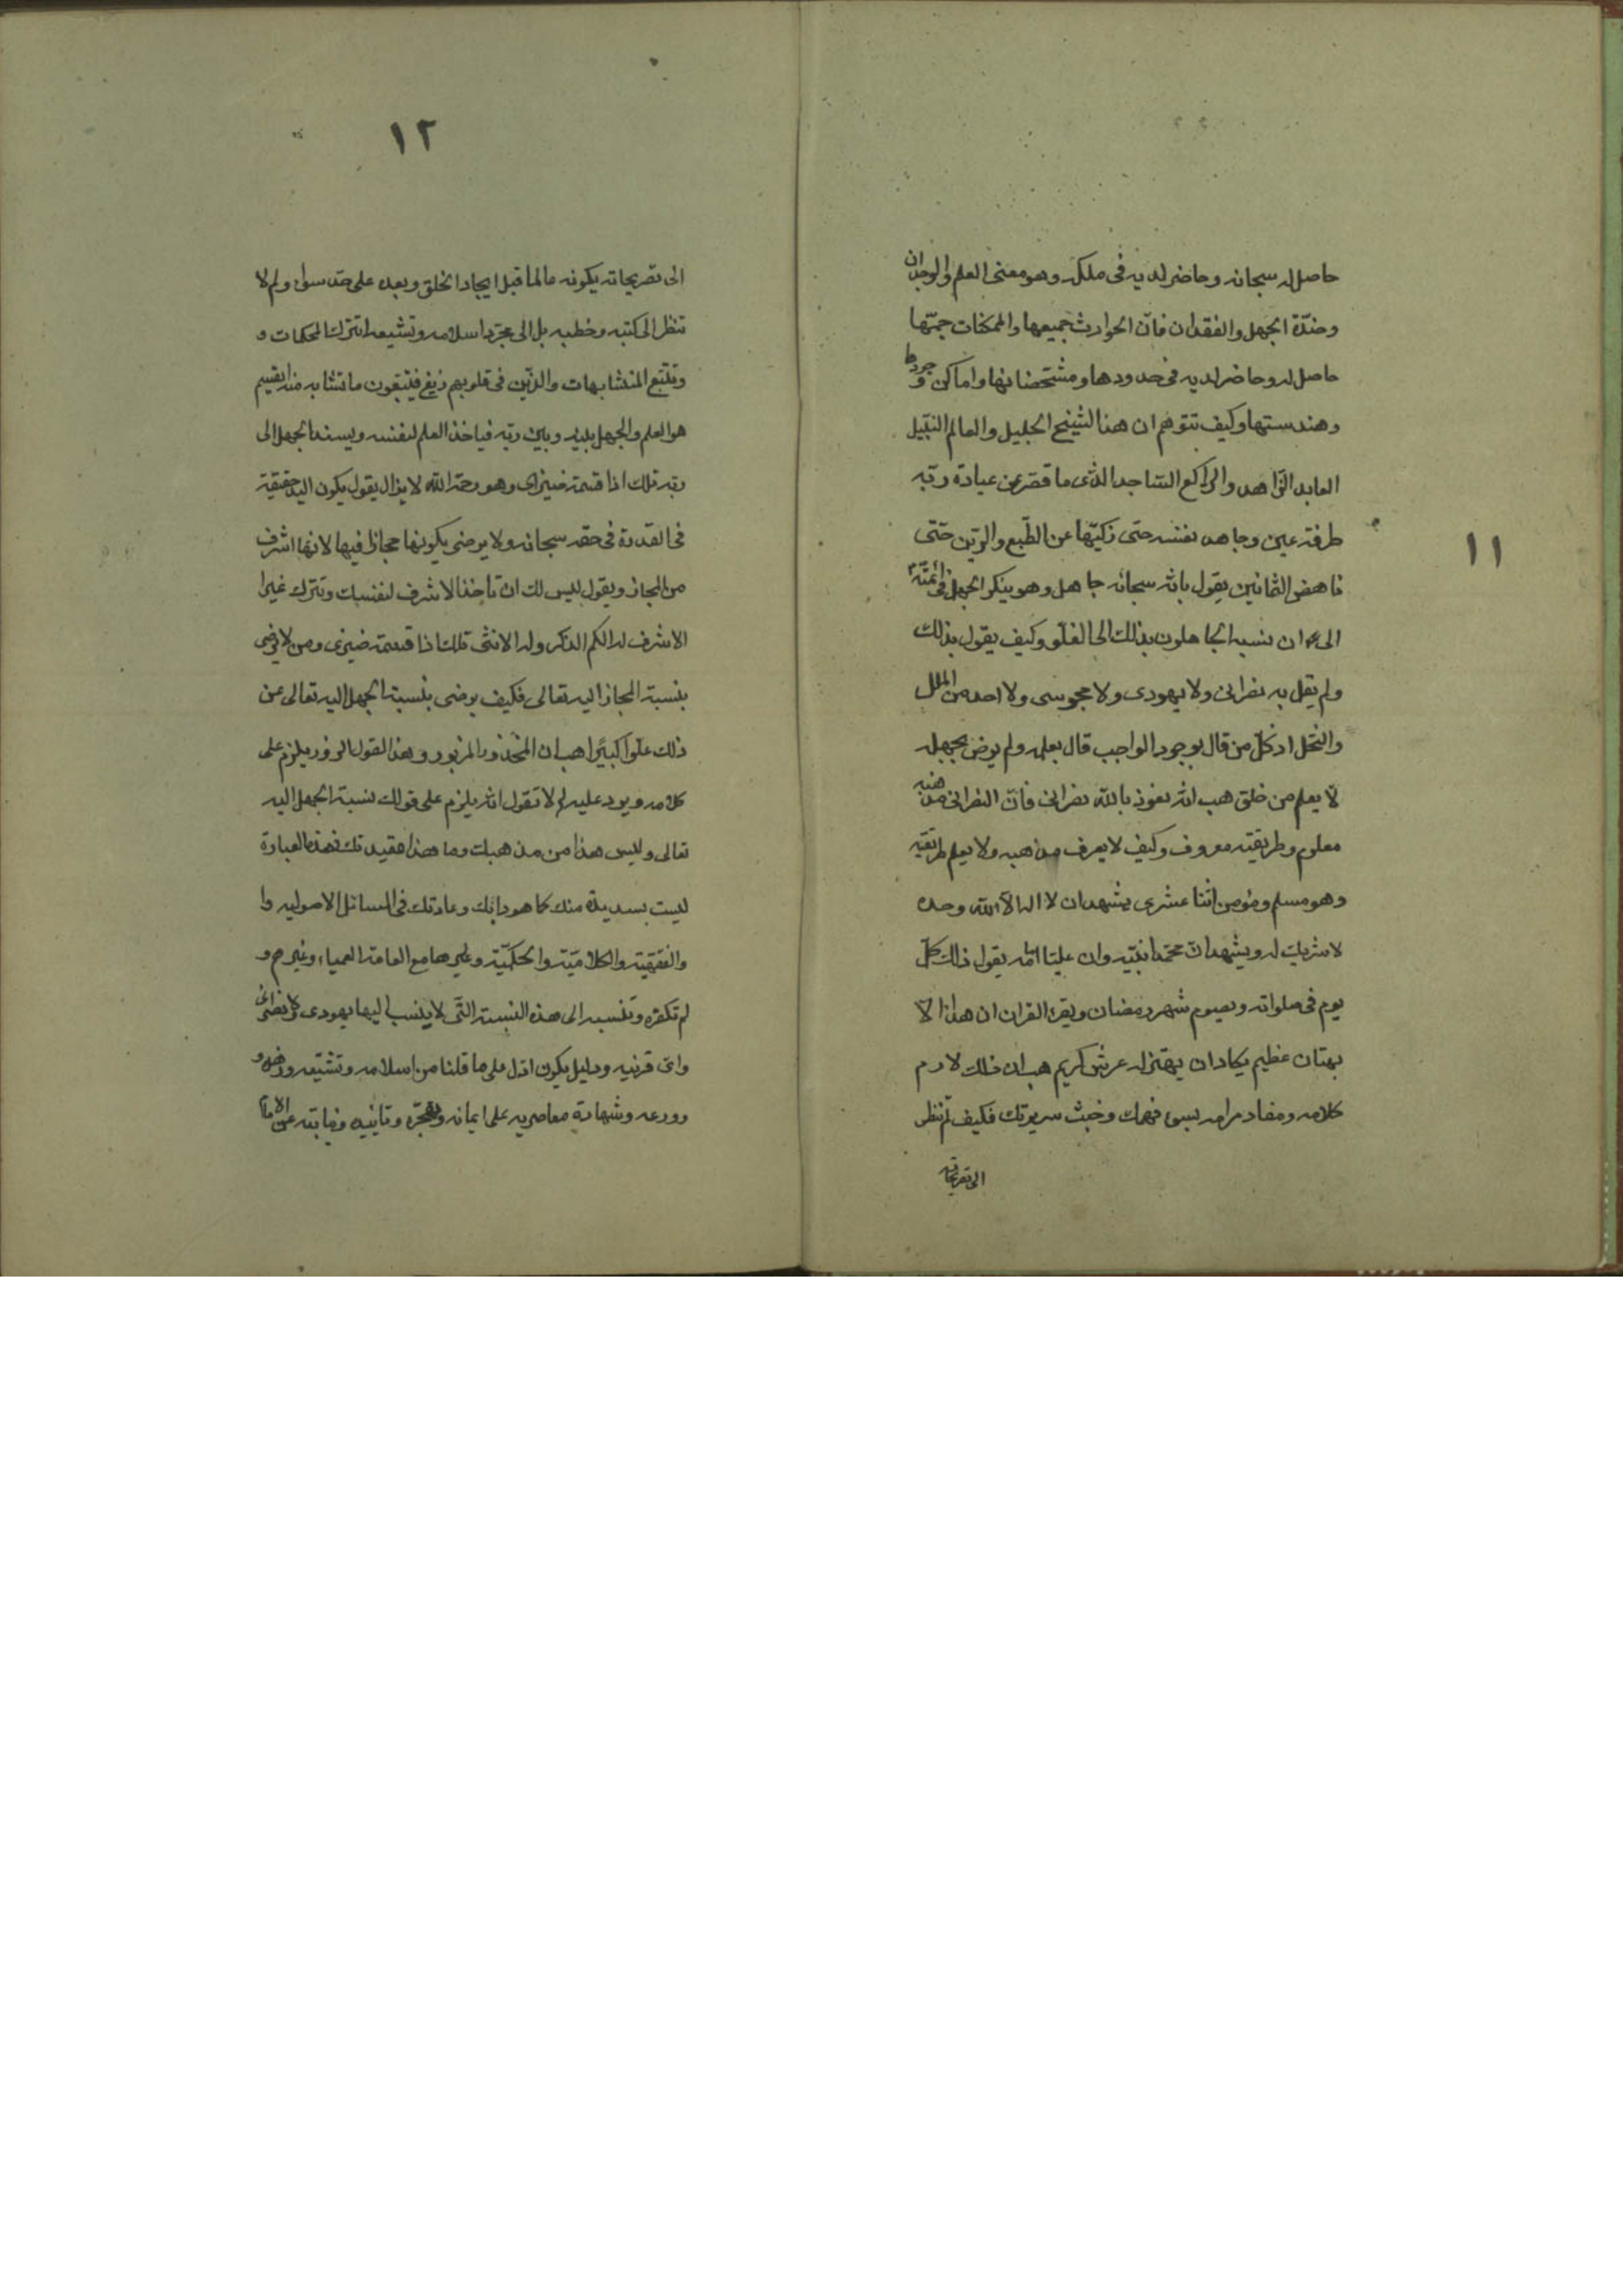 ١١
حاصل له سبحانه وحاضر لديه فى ملكه وهو معنى العلم والوجدان
وضدّه الجهل والفقدان فانّ الحوادث جميعها والممكنات جمّتها
حاصل له وحاضر لديه فى حدودها ومشخصاتها واماكن وجودها
وهندستها وكيف تتوهم ان هذا الشيخ الجليل والعالم النبيل
العابد الزاهد والراكع الساجد الذى ما قصر عن عبادة ربّه
طرفة عين وجاهد نفسه حتى زكيّها عن الطّبع والرّين حتّى
ناهض الثمانين يقول بانّه سبحانه جاهل وهو ينكر الجهل فى ائمّته
الى ان نسبه الجاهلون بذلك الى الغلّو وكيف يقول بذلك
ولم يقل به نصرانى ولا يهودى ولا مجوسى ولا احد من الملل
والنحل اذ كلّ من قال بوجود الواجب قال بعلمه ولم يرض بجهله
الا يعلم من خلق هب انّه نعوذ بالله نصرانى فانّ النصرانى مذهبه
معلوم وطريقته معروف وكيف لا يعرف مذهبه ولا يعلم طريقته
وهو مسلم ومؤمن اثنا عشرى يشهد ان لا اله الّا الله وحده
لا شريك له ويشهد انّ محمّدا نبيّه وان عليّا امامه يقول ذلك كلّ
يوم فى صلواته ويصوم شهر رمضان ويقرء القران ان هذا الّا
بهتان عظيم يكاد ان يهتز له عرش كريم هب ان ذلك لازم
كلامه ومفاد مرامه بسوء فهمك وخبث سريرتك فكيف لم تنظر
الى تصريحاته
١٢
الى تصريحاته بكونه عالما قبل ايجاد الخلق وبعده على حدّ سواء ولم لا
تنظر الى كتبه وخطبه بل الى مجرّد اسلامه وتشيعه اتترك المحكمات و
وتتبع المتشابهات والذين فى قلوبهم زيغ فيتبعون ما تشابه منه ايقسم
هو العلم والجهل بينه وبين ربّه فياخذ العلم لنفسه ويسند الجهل الى
ربّه تلك اذا قسمة ضيزى وهو رحمه الله لا يزال يقول بكون اليد حقيقة
فى القدرة فى حقه سبحانه ولا يرضى بكونها مجازا فيها لانها اشرف
من المجاز ويقول ليس لك ان تاخذ الاشرف لنفسك وتترك غير
الاشرف له الكم الذكر وله الانثى تلك اذا قسمة ضيزى ومن لا يرضى
بنسبة المجاز اليه تعالى فكيف يرضى بنسبة الجهل اليه تعالى عن
ذلك علّوا كبيرا هب ان المحذور المزبور وهذا القول الزور يلزم على
كلامه ويرد عليه لم لا تقول انّه يلزم على قولك نسبة الجهل اليه
تعالى وليس هذا من مذهبك وما هذا عقيدتك فهذه العبارة
ليست ببديعة منك كما هو دابك وعادتك فى المسائل الاصوليه وا
والفقهية والكلاميّة والحكميّة وغيرها مع العامة العمياء وغيرهم و
لم تكفره وتنسبه الى هذه النسبة التّى لا ينسب اليها يهودى ولا نصرانى
واىّ قرنيه ودليل يكون ادّل على ما قلنا من اسلامه وتشيّعه وزهده و
وورعه وشهادة معاصريه على ايمانه وتبحّره ونيابته عن الامام